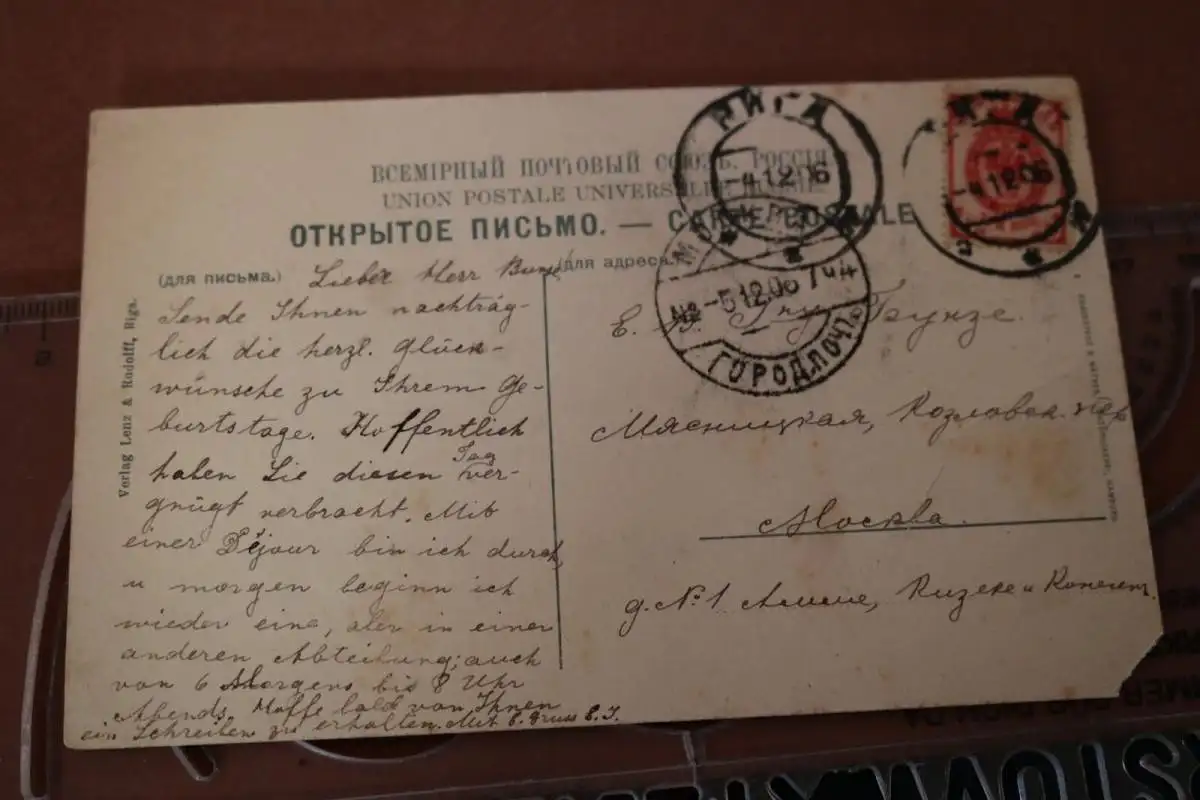 ВСЕМІРНЫЙ ПОЧТОВЫЙ СОЮЗЪ. РОССІЯ
UNION POSTALE UNIVERSELLE. RUSSIE
ОТКРЫТОЕ ПИСЬМО. — CARTE POSTALE
(для письма.)
(для адреса.)
Lieber Herr
Sende Ihnen nachträg-
lich die herzl. Glück-
wünsche zu Ihrem Ge-
burtstage. Hoffentlich
haben Sie diesen Tag ver-
gnügt verbracht. Mit
einer Dejour bin ich durch,
u morgen beginn ich
wieder eine, aber in einer
anderen Abteilung; auch
von 6 Morgens bis 8 Uhr
Abends. Hoffe bald von Ihnen
ein Schreiben zu erhalten. Mit E. Gruss E. J.
Verlag Lenz & Rudolff, Riga.
РИГА
-4.12.06
-4.12.06
МОСКВА
-5.12.06
ГОРОД.ПОЧТ.
Е. В. Бунзе.
Мясницкая, Козловск. пер
Москва.
д. № 1